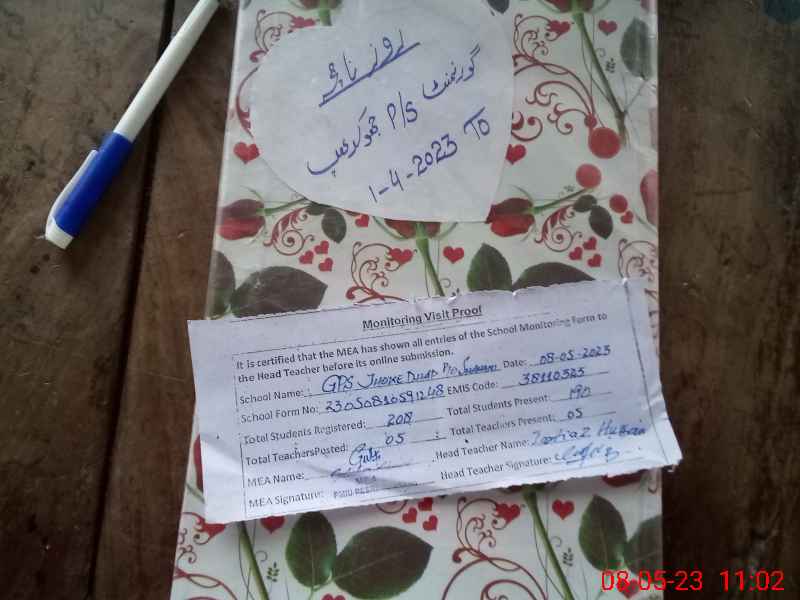 روزنامچہ
گورنمنٹ P/S جھوک
1-4-2023 TO
Monitoring Visit Proof
It is certified that the MEA has shown all entries of the School Monitoring Form to
the Head Teacher before its online submission.
School Name: GPS JHOKE Date: 08-05-2023
School Form No: 23050810591248 EMIS Code: 38110323
Total Students Registered: 208 Total Students Present: 190
Total TeachersPosted: 05 Total Teachers Present: 05
MEA Name: Head Teacher Name: Hussain
MEA Signature: Head Teacher Signature:
08-05-23 11:02